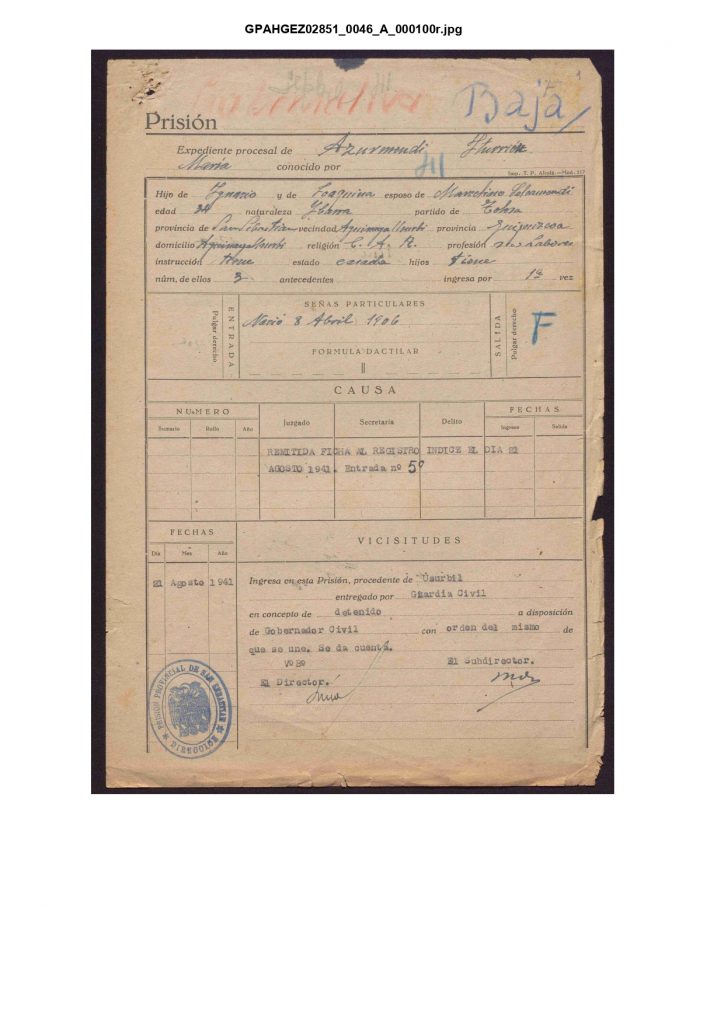 GPAHGEZ02851_0046_A_000100r.jpg
Baja
Prisión
Expediente procesal de Azurmendi
María conocido por
Imp. T. P. Alcalá.—Mod. 217
Hijo de Ignacio y de Joaquina esposo de Marcelino
edad 34 naturaleza Ybarra partido de Tolosa
provincia de San Sebastian vecindad provincia Guipuzcoa
domicilio religión C. A. R. profesión sus Labores
instrucción tiene estado casada hijos tiene
núm. de ellos 3 antecedentes ingresa por 1ª vez
ENTRADA
Pulgar derecho
SEÑAS PARTICULARES
Nació 8 Abril 1906
FORMULA DACTILAR
SALIDA
Pulgar derecho
F
CAUSA
NUMERO Juzgado Secretaría Delito FECHAS
Sumario Rollo Año Ingreso Salida
REMITIDA FICHA AL REGISTRO INDICE EL DIA 21
AGOSTO 1941. Entrada nº 5º
FECHAS VICISITUDES
Día Mes Año
21 Agosto 1941 Ingresa en esta Prisión, procedente de Usurbil
entregado por Guardia Civil
en concepto de detenido a disposición
de Gobernador Civil con orden del mismo de
que se une. Se da cuenta.
VºBº El Subdirector.
El Director.
PRISIÓN PROVINCIAL DE SAN SEBASTIAN
DIRECCION